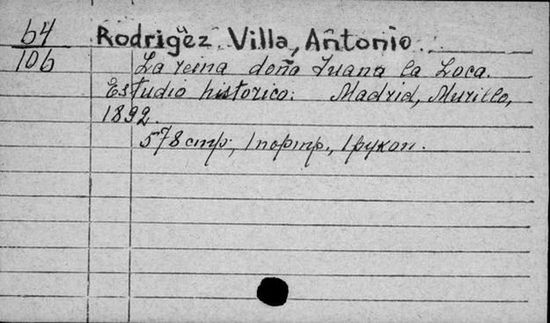 64
106
Rodrigĕz Villa, Antonio
La reina doña Juana la Loca.
Estudio historico. Madrid, Murillo,
1892.
578 стр., 1 портр., 1 рукоп.